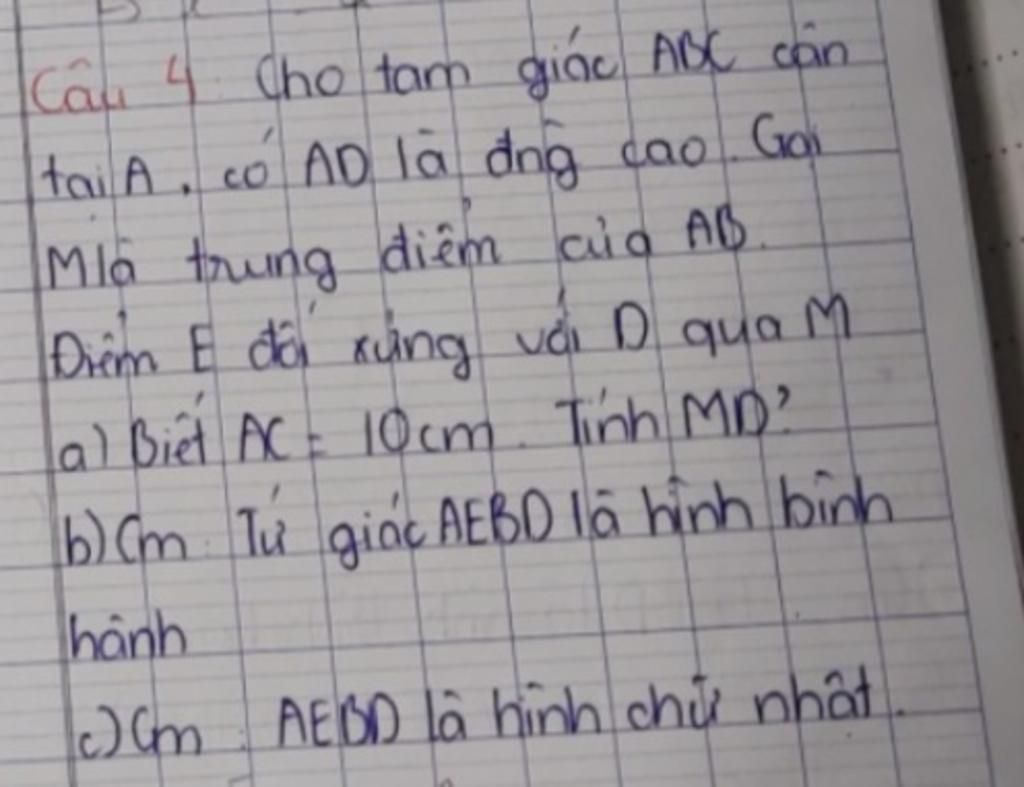 Câu 4 Cho tam giác ABC cân
tại A, có AD là đng̃ cao. Gọi
M là trung điểm của AB.
Điểm E đối xứng với D qua M
a) Biết AC = 10cm. Tính MD?
b) Cm: Tứ giác AEBD là hình bình
hành
c) Cm: AEBD là hình chữ nhật.